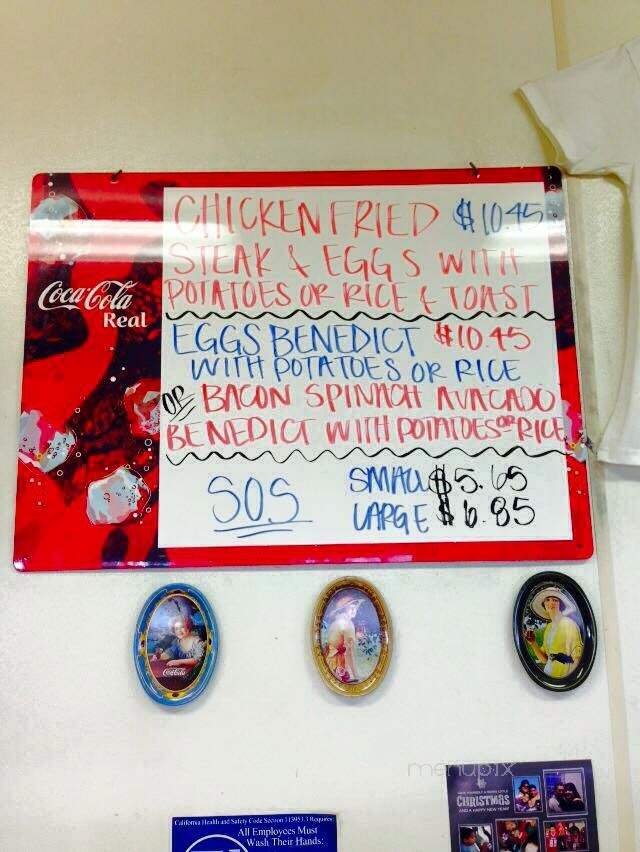 CHICKEN FRIED $10.45
STEAK & EGGS WITH
POTATOES OR RICE & TOAST
Coca-Cola
Real
EGGS BENEDICT $10.45
WITH POTATOES OR RICE
OR BACON SPINACH AVACADO
BENEDICT WITH POTATOES OR RICE
SOS SMALL $5.65
LARGE $6.85
Coca-Cola
menupix
CHRISTMAS
AND A HAPPY NEW YEAR
California Health and Safety Code Section 113953.3 Requires
All Employees Must
Wash Their Hands: